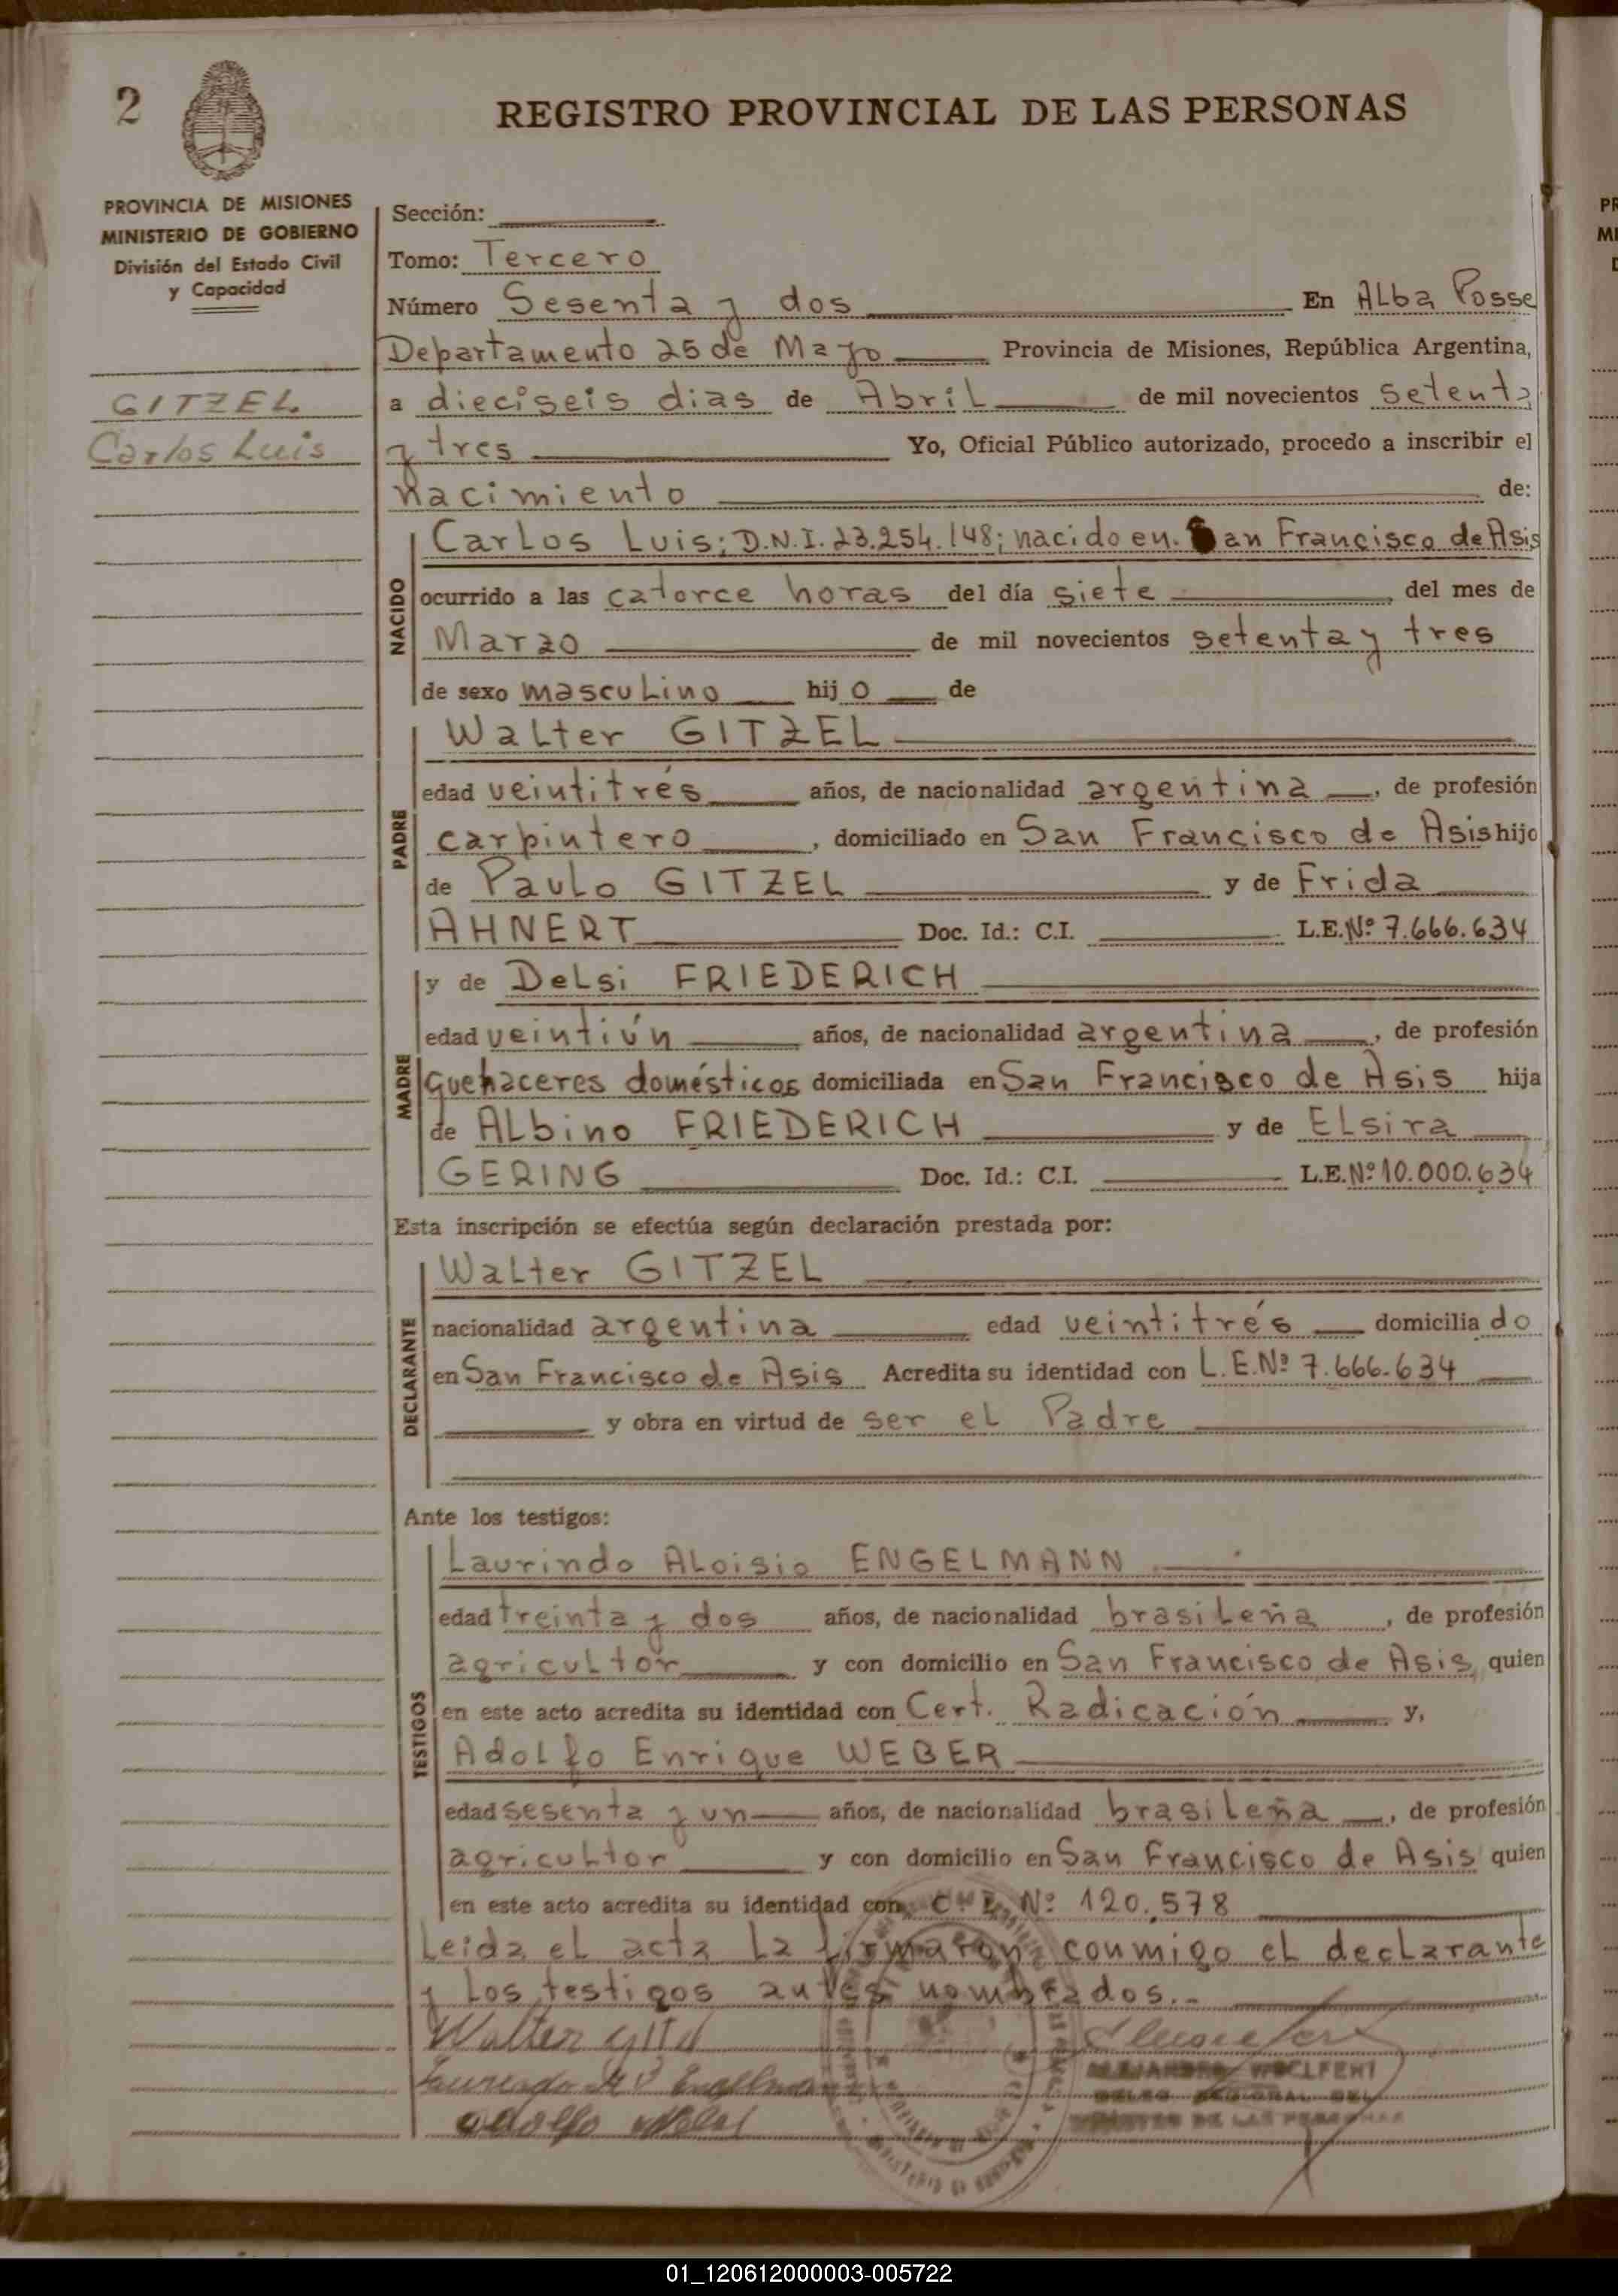 2
REGISTRO PROVINCIAL DE LAS PERSONAS
PROVINCIA DE MISIONES
MINISTERIO DE GOBIERNO
División del Estado Civil
y Capacidad
GITZEL
Carlos Luis
Sección:
Tomo: Tercero
Número Sesenta y dos En Alba Posse
Departamento 25 de Mayo Provincia de Misiones, República Argentina,
a dieciseis dias de Abril de mil novecientos setenta
y tres Yo, Oficial Público autorizado, procedo a inscribir el
nacimiento de:
NACIDO
Carlos Luis; D.N.I. 23.254.148; nacido en San Francisco de Asis
ocurrido a las catorce horas del día siete del mes de
Marzo de mil novecientos setenta y tres
de sexo masculino hijo de
PADRE
Walter GITZEL
edad veintitrés años, de nacionalidad argentina, de profesión
carpintero, domiciliado en San Francisco de Asis hijo
de Paulo GITZEL y de Frida
AHNERT Doc. Id.: C.I. L.E. Nº 7.666.634
MADRE
y de Delsi FRIEDERICH
edad veintiún años, de nacionalidad argentina, de profesión
quehaceres domésticos domiciliada en San Francisco de Asis hija
de Albino FRIEDERICH y de Elsira
GERING Doc. Id.: C.I. L.E. Nº 10.000.634
Esta inscripción se efectúa según declaración prestada por:
DECLARANTE
Walter GITZEL
nacionalidad argentina edad veintitrés domiciliado
en San Francisco de Asis Acredita su identidad con L.E. Nº 7.666.634
y obra en virtud de ser el Padre
Ante los testigos:
TESTIGOS
Laurindo Aloisio ENGELMANN
edad treinta y dos años, de nacionalidad brasileña, de profesión
agricultor y con domicilio en San Francisco de Asis, quien
en este acto acredita su identidad con Cert. Radicación y,
Adolfo Enrique WEBER
edad sesenta y un años, de nacionalidad brasileña, de profesión
agricultor y con domicilio en San Francisco de Asis quien
en este acto acredita su identidad con C. I. Nº 120.578
Leida el acta la firmaron conmigo el declarante
y los testigos antes nombrados.-
Walter
Engelmann
Adolfo
01_120612000003-005722